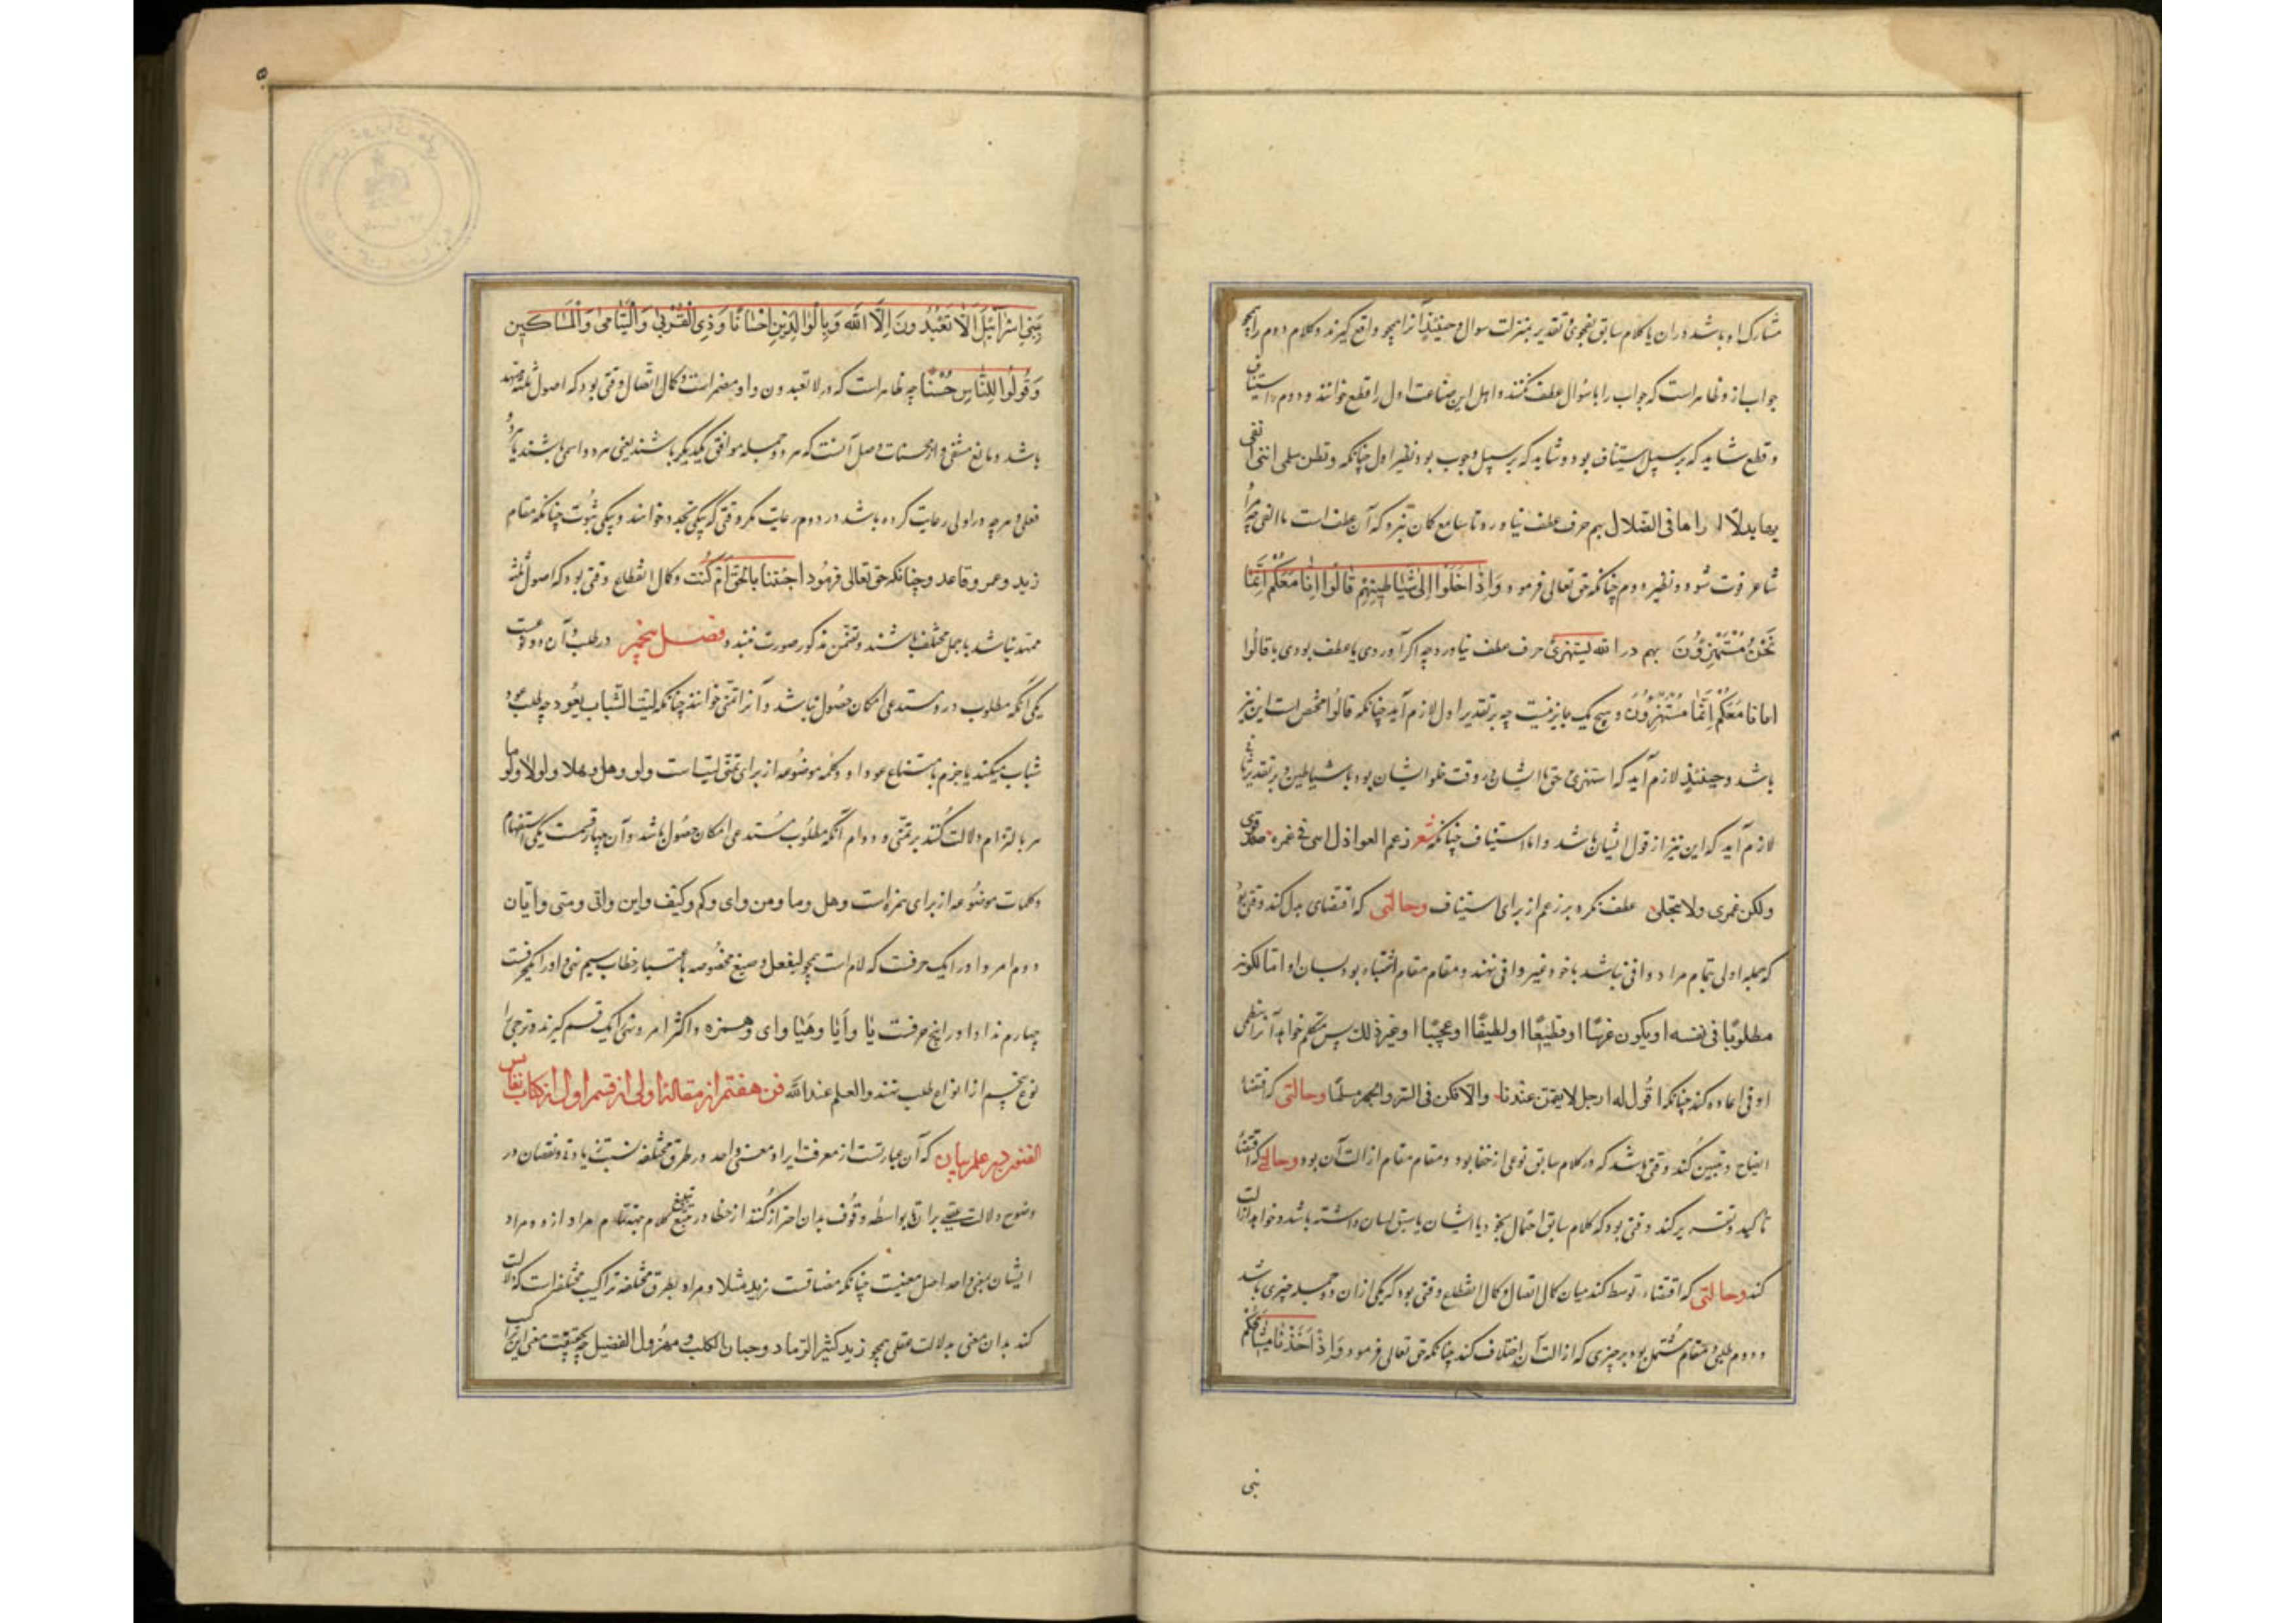 مشارک او باشد در ان یا کلام سابق بفحوی تقدیر بمنزلت سوال و حینئذ آنرا همچو واقع گیرند و کلام دوم را همچو
جواب از و ظاهر است که جواب را با سؤال عطف نکنند و اهل این صناعت اول را قطع خوانند و دوم را استیناف
و قطع شاید که بر سبیل استیناف بود و شاید که بر سبیل وجوب بود نظیر اول چنانکه و تظن سلمی اننی ابغی
بها بدلا اراها فی الضلال تهیم حرف عطف نیاورد تا سامع کمان نبرد که آن عطف است با ابغی چه مراد
شاعر فوت شود و نظیر دوم چنانکه حق تعالی فرمود وَاِذٰا خَلَوْا اِلیٰ شَیٰاطینِهِمْ قٰالُوا اِنّٰا مَعَکُمْ اِنَّمٰا
نَحْنُ مُسْتَهْزِؤُنَ بهم در الله یستهزئ حرف عطف نیاورد چه اکر آوردی یا عطف بودی با قالوا
اما انا مَعَکُمْ اِنَّمٰا مُسْتَهْزِؤُنَ و هیچ یک جایز نیست چه بر تقدیر اول لازم آید چنانکه قالوا مختص است این نیز
باشد و حینئذ لازم آید که استهزئ حق با ایشان در وقت خلو ایشان بود با شیاطین و بر تقدیر ثانی
لازم آید که این نیز از قول ایشان باشد و اما استیناف چنانکه شعر زعم العواذل اننی فی غمره صدقوا
ولکن غمرتی ولا تنجلی علف نکرد بر زعم از برای استیناف وحالتی که اقتضای بدل کند وقتی بود
که جمله اولی بتمام مراد وافی نباشد یا خود غیر وافی نهند و مقام مقام اشتباه بود بسان او اما لکونه
مطلوبا فی نفسه او یکون غریبا او فظیعا او لطیفا او عجیبا او غیر ذلک پس متکلم خواهد آنرا بنظمی
اوفی اعاده کند چنانکه اقول له ارحل لا تقیمن عندنا والا فکن فی السر والجهر مسلما وحالتی که اقتضاء
ایضاح و تبیین کند وقتی باشد که در کلام سابق نوعی از خفا بود و مقام مقام ازالت آن بود وحالتی که اقتضاء
تاکید و تقریر کند وقتی بود که کلام سابق احتمال تجوز یا نسیان یا سبق لسان داشته باشد و خواهد ازالت
کند وحالتی که اقتضاء توسط کند میان کمال اتصال و کمال انقطاع وقتی بود که یکی از ان دو جمله خبری باشد
و دوم طلبی و مقام مشتمل بود بر چیزی که ازالت آن اختلاف کند چنانکه حق تعالی فرمود وَاِذْ اَخَذْنٰا مِیثٰاقَکُمْ
بنی
۵
بَنِی اِسْرٰآئیلَ لاٰ تَعْبُدُونَ اِلَّا اللّٰهَ وَبِالْوٰالِدَیْنِ اِحْسٰانًا وَذِی الْقُرْبیٰ وَالْیَتٰامیٰ وَالْمَسٰاکینِ
وَقُولُوا لِلنّٰاسِ حُسْنًا چه ظاهر است که در لا تعبدون واو مضمر است و کمال اتصال وقتی بود که اصول ثلثه ممهد
باشد و مانع منتفی و از محسنات وصل آنست که هر دو جمله موافق یکدیگر باشند یعنی هر دو اسمی باشند یا هر دو
فعلی و هر چه در اولی رعایت کرده باشد در دوم رعایت مکر وقتی که بیکی تجدد خواهند و بیکی ثبوت چنانکه مقام
زید و عمرو قاعد و چنانکه حق تعالی فرمود اجئتنا بالحق ام کنت و کمال انقطاع وقتی بود که اصول ثلثه
ممهد نباشد یا جمل مختلف باشند و تضمن مذکور صورت نبندد فصل پنجم در طلب و آن دو نوعست
یکی آنکه مطلوب در و مستدعی امکان حصول نباشد و آنرا تمنی خوانند چنانکه لیت الشباب یعود چه طلب عود
شباب میکند با جزم بامتناع عود او و کلمه موضوعه از برای تمنی لیت است و لو و هل و هلا و لولا و لوما
هر بالتزام دلالت کنند بر تمنی و دوام آنکه مطلوب مستدعی امکان حصول باشد و آن چهار قسمت یکی استفهام
و کلمات موضوعه از برای همزه است و هل و ما و من و ای و کم و کیف و این و انی و متی و ایان
دوم امر و او را یک حرفست که لام است همچو لیفعل و صیغ مخصوصه باعتبار خطاب سیم نهی و او را یکحرفست
چهارم ندا و او را پنج حرفست یا و أیا و هیا و ای و همزه و اکثر امر و نهی را یک قسم گیرند و ترجی را
نوع پنجم از انواع طلب نهند والعلم عند الله فن هفتم از مقاله اولی از قسم اول از کتاب نفایس
الفنون در علم بیان که آن عبارتست از معرفت ایراد معنی واحد در طرق مختلفه نسبت بزیادت و نقصان در
وضوح دلالت عقلی بر ان تا بواسطه وقوف بدان احتراز کنند از خطا در تطبیق کلام بتمام مراد از و و مراد
ایشان بمعنی واحد اصل معنیست چنانکه مضافت زید مثلا و مراد بطرق مختلفه تراکیب مختلفه است که دلالت
کند بدان معنی بدلالت عقلی همچو زید کثیر الرماد و جبان الکلب و مهزول الفصیل چه حقیقت معنی این تراکیب